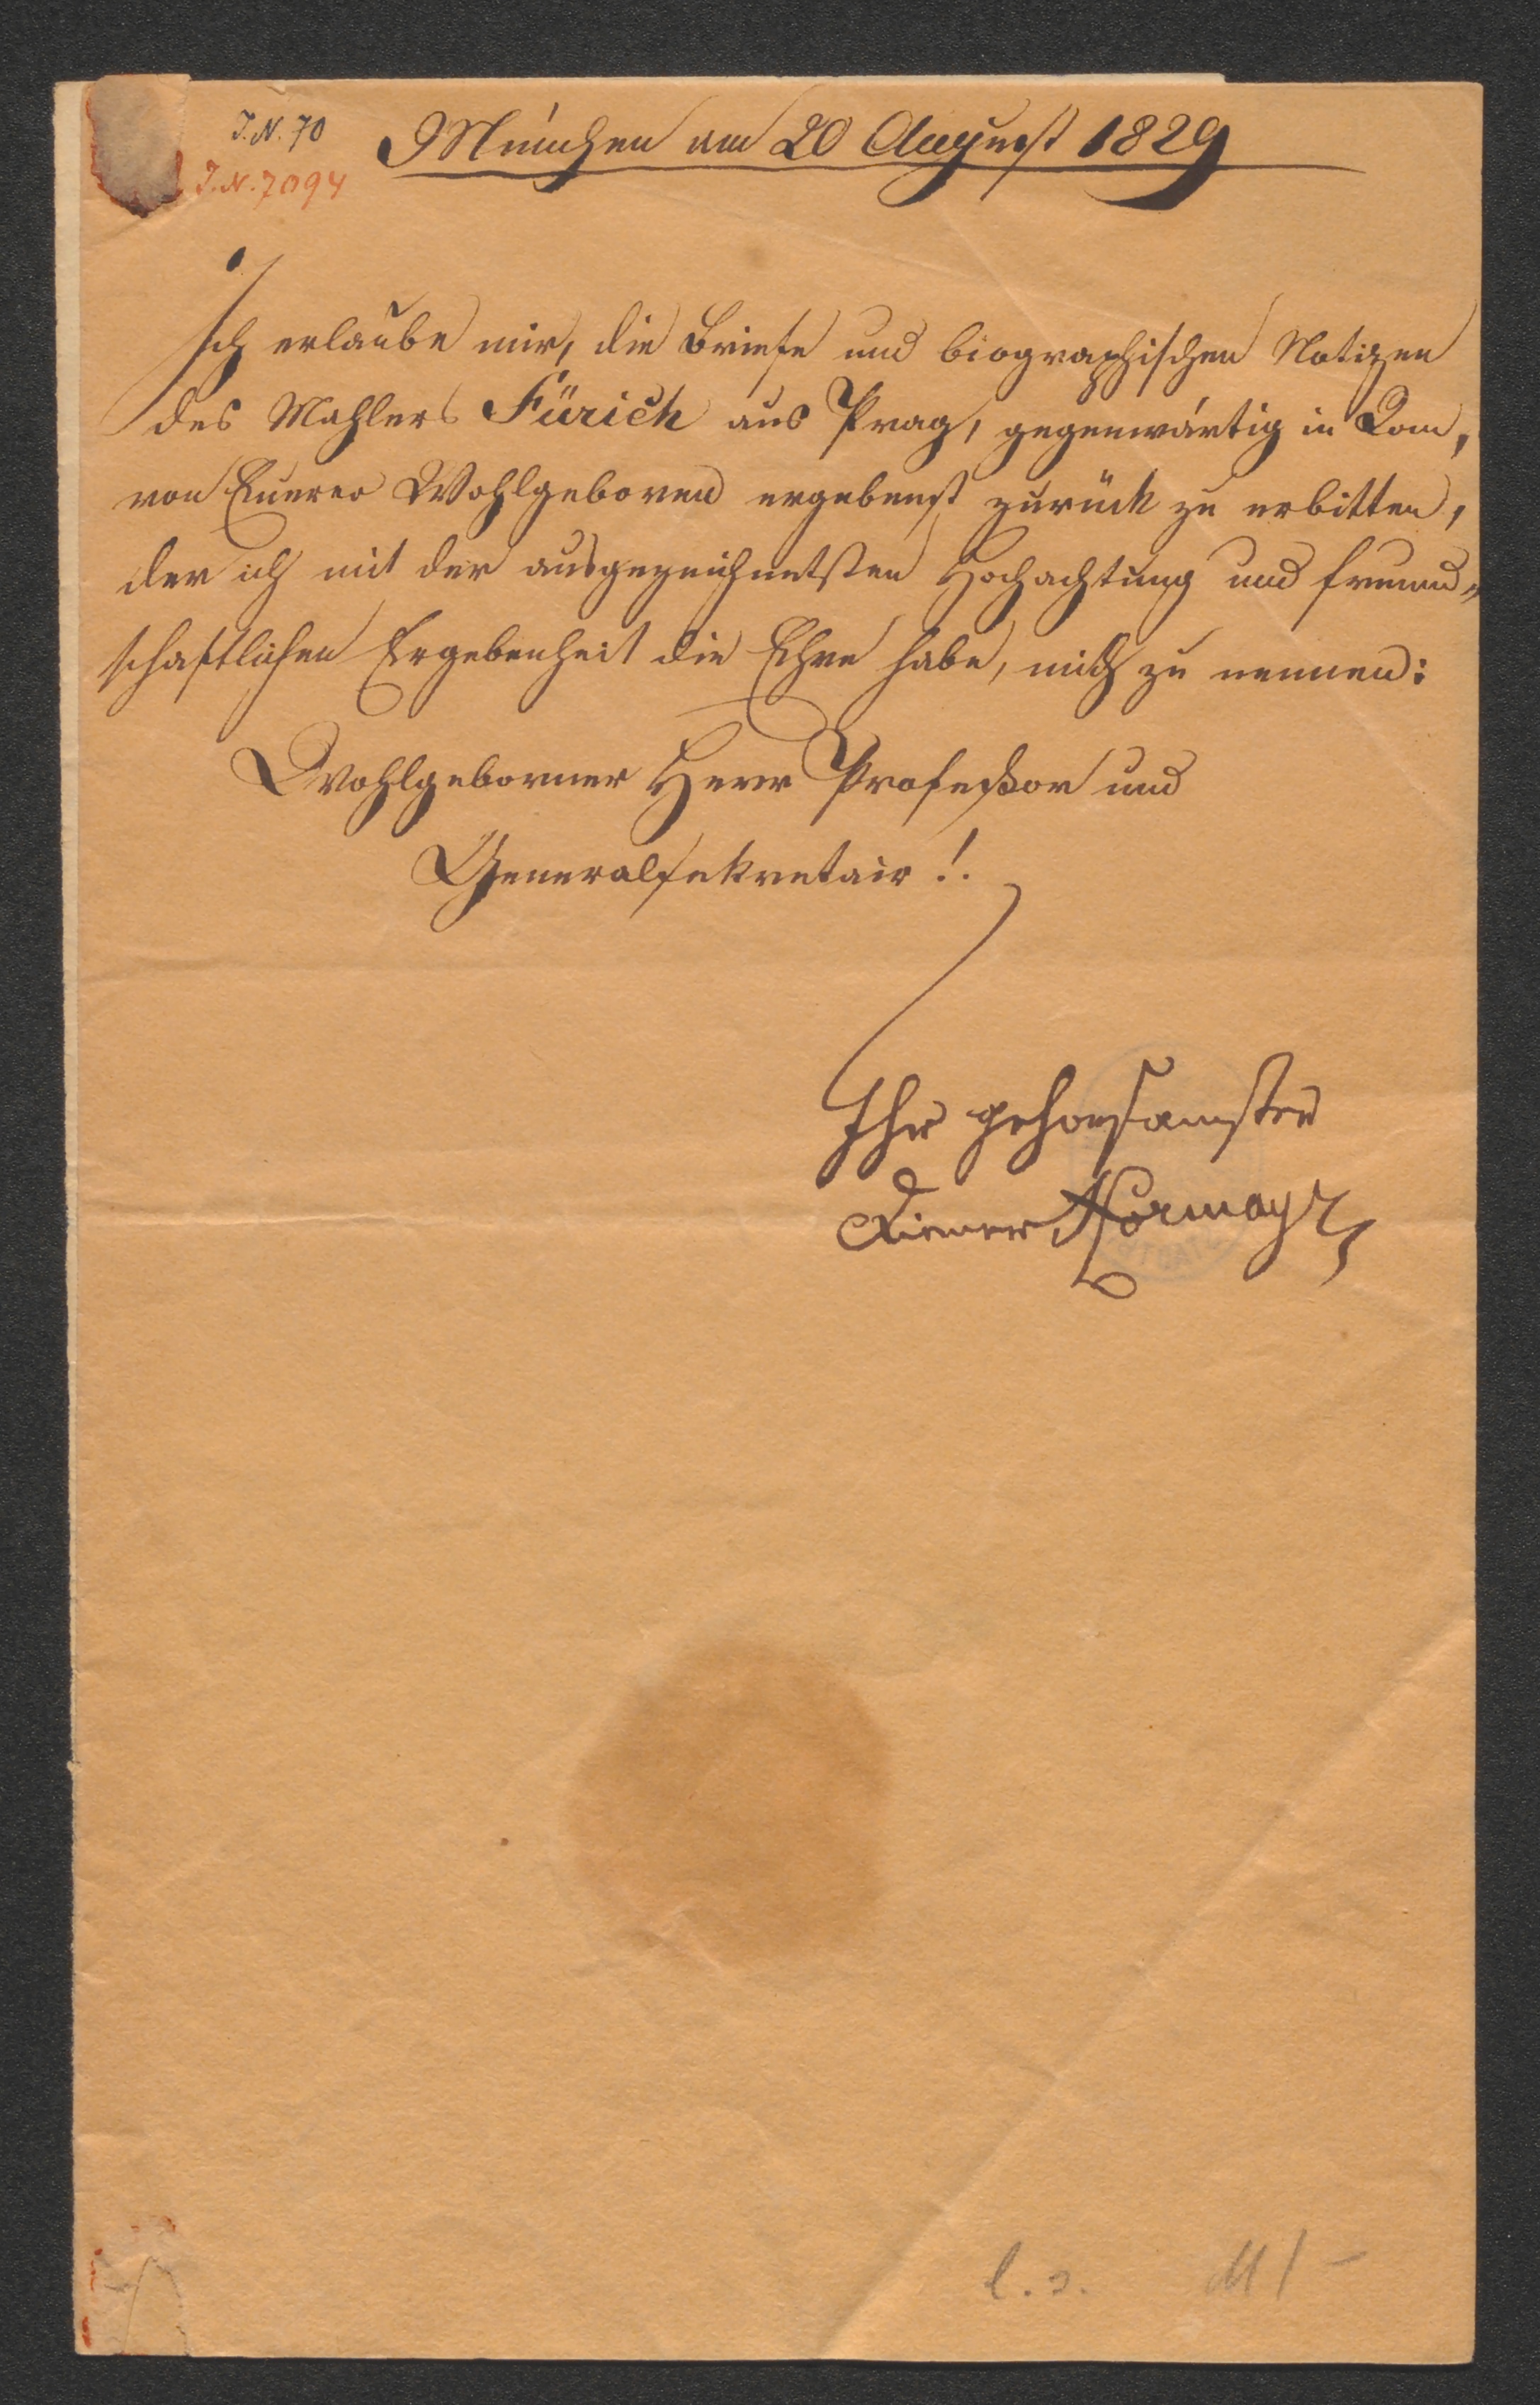 J.N. 70
J.N. 7094
München am 20 August 1829
Ich erlaube mir, die Briefe und biographischen Notizen
des Mahlers Fürich aus Prag, gegenwärtig in Rom,
von Euerer Wohlgeboren ergebenst zurück zu erbitten,
der ich mit der ausgezeichnetsten Hochachtung und freund„
schaftlichen Ergebenheit die Ehre habe, mich zu nennen:
Wohlgeborner Herr Profeßor und
Generalsekretair!.
Ihr gehorsamster
Diener Hormayr
l.s. M 1 –